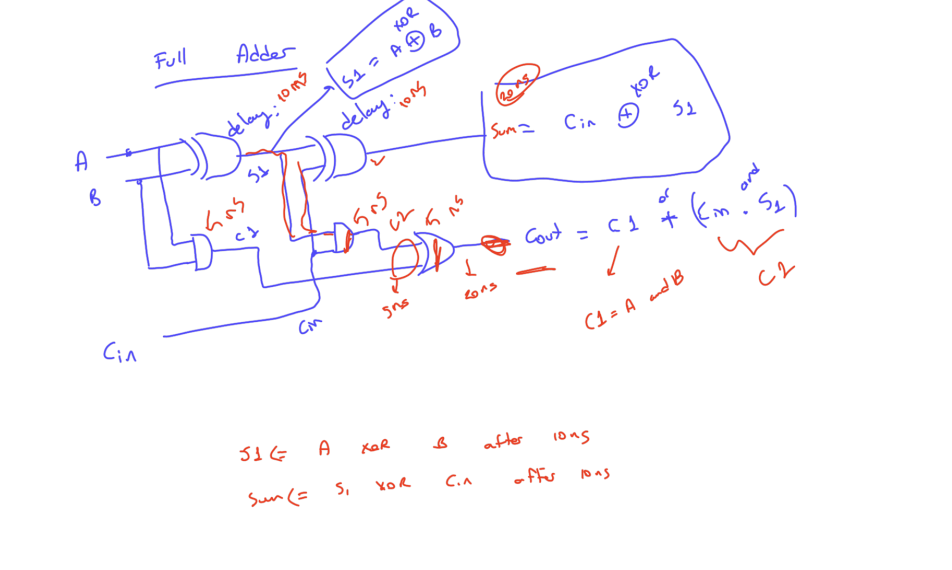 Full Adder
S1 = A ⊕ B
XOR
delay: 10ns
delay: 10ns
20ns
XOR
Sum = Cin ⊕ S1
A
B
S1
5ns
C1
5ns
C2
5ns
Cout = C1 + (Cin . S1)
or
and
5ns
20ns
C1 = A and B
C2
Cin
Cin
S1 <= A XOR B after 10ns
Sum <= S1 XOR Cin after 10ns